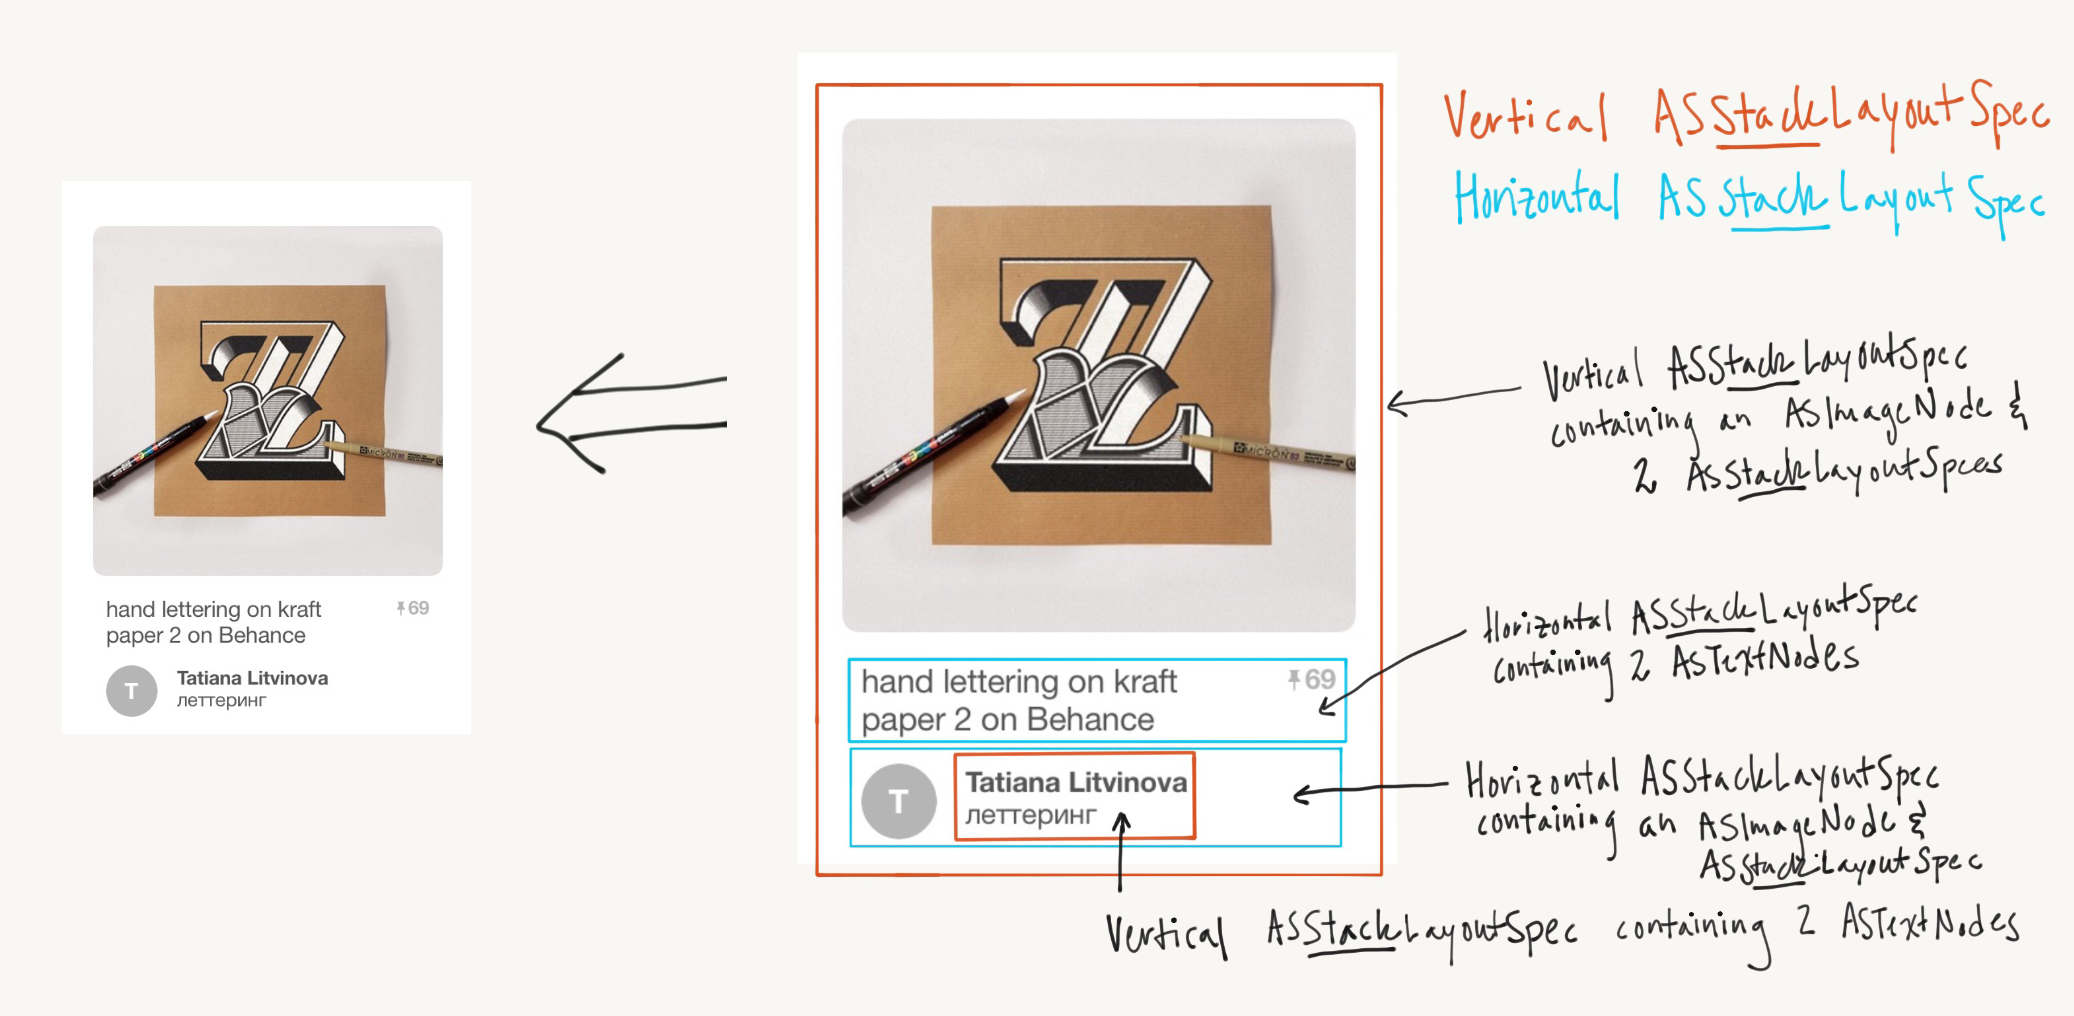 hand lettering on kraft
paper 2 on Behance
69
T
Tatiana Litvinova
леттеринг
MICRON
hand lettering on kraft
paper 2 on Behance
69
T
Tatiana Litvinova
леттеринг
MICRON
Vertical ASStackLayoutSpec
Horizontal ASStackLayoutSpec
Vertical ASStackLayoutSpec
containing an ASImageNode &
2 ASStackLayoutSpecs
Horizontal ASStackLayoutSpec
containing 2 ASTextNodes
Horizontal ASStackLayoutSpec
containing an ASImageNode &
ASStackLayoutSpec
Vertical ASStackLayoutSpec containing 2 ASTextNodes